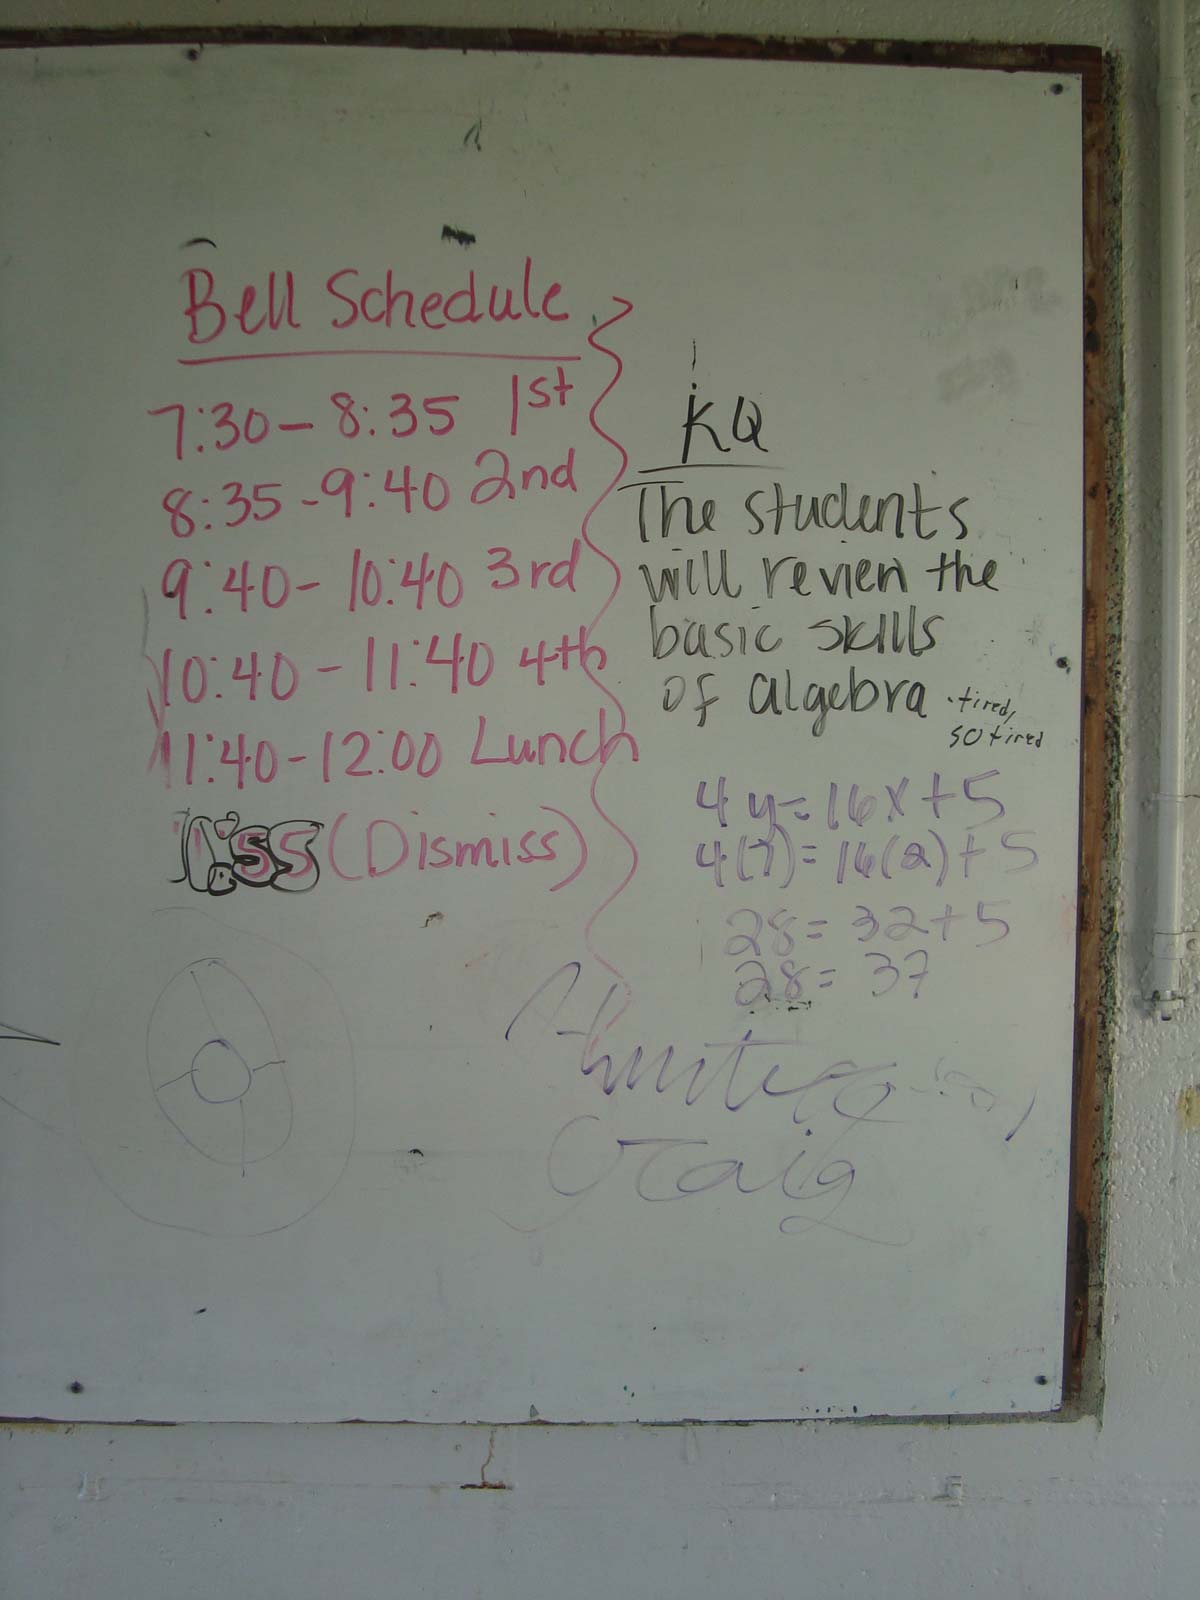 Bell Schedule
7:30 - 8:35 1st
8:35 - 9:40 2nd
9:40 - 10:40 3rd
10:40 - 11:40 4th
11:40 - 12:00 Lunch
11:55 (Dismiss)
KQ
The students
will review the
basic skills
of algebra
- tired,
so tired
4y = 16x + 5
4(7) = 16(2) + 5
28 = 32 + 5
28 = 37
Craig